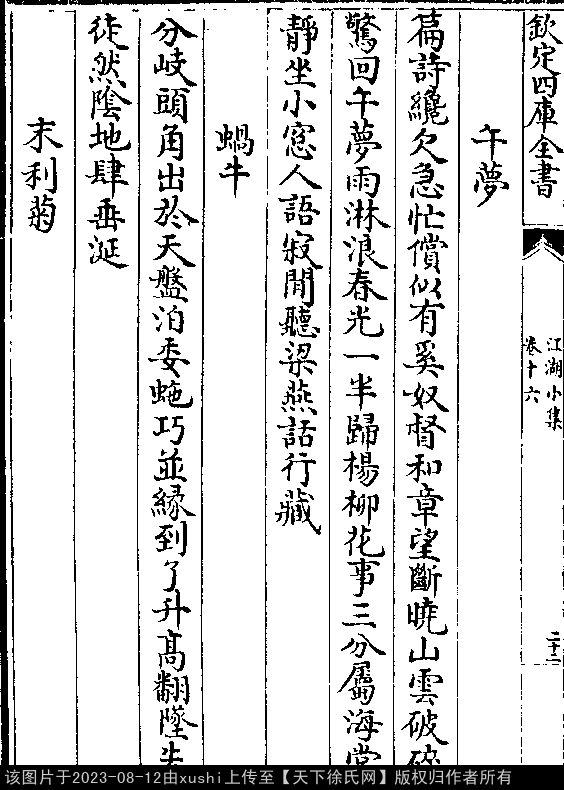 欽定四庫全書
江湖小集
卷十六
二十二
午夢
篇詩纔欠急忙償似有奚奴督和章望斷曉山雲破碎
驚回午夢雨淋浪春光一半歸楊柳花事三分屬海棠
靜坐小窓人語寂閒聽梁燕話行藏
蝸牛
分岐頭角出於天盤泊委蛇巧並緣到了升髙翻墜失
徒然陰地肆垂涎
末利菊
该图片于2023-08-12由xushi上传至【天下徐氏网】版权归作者所有